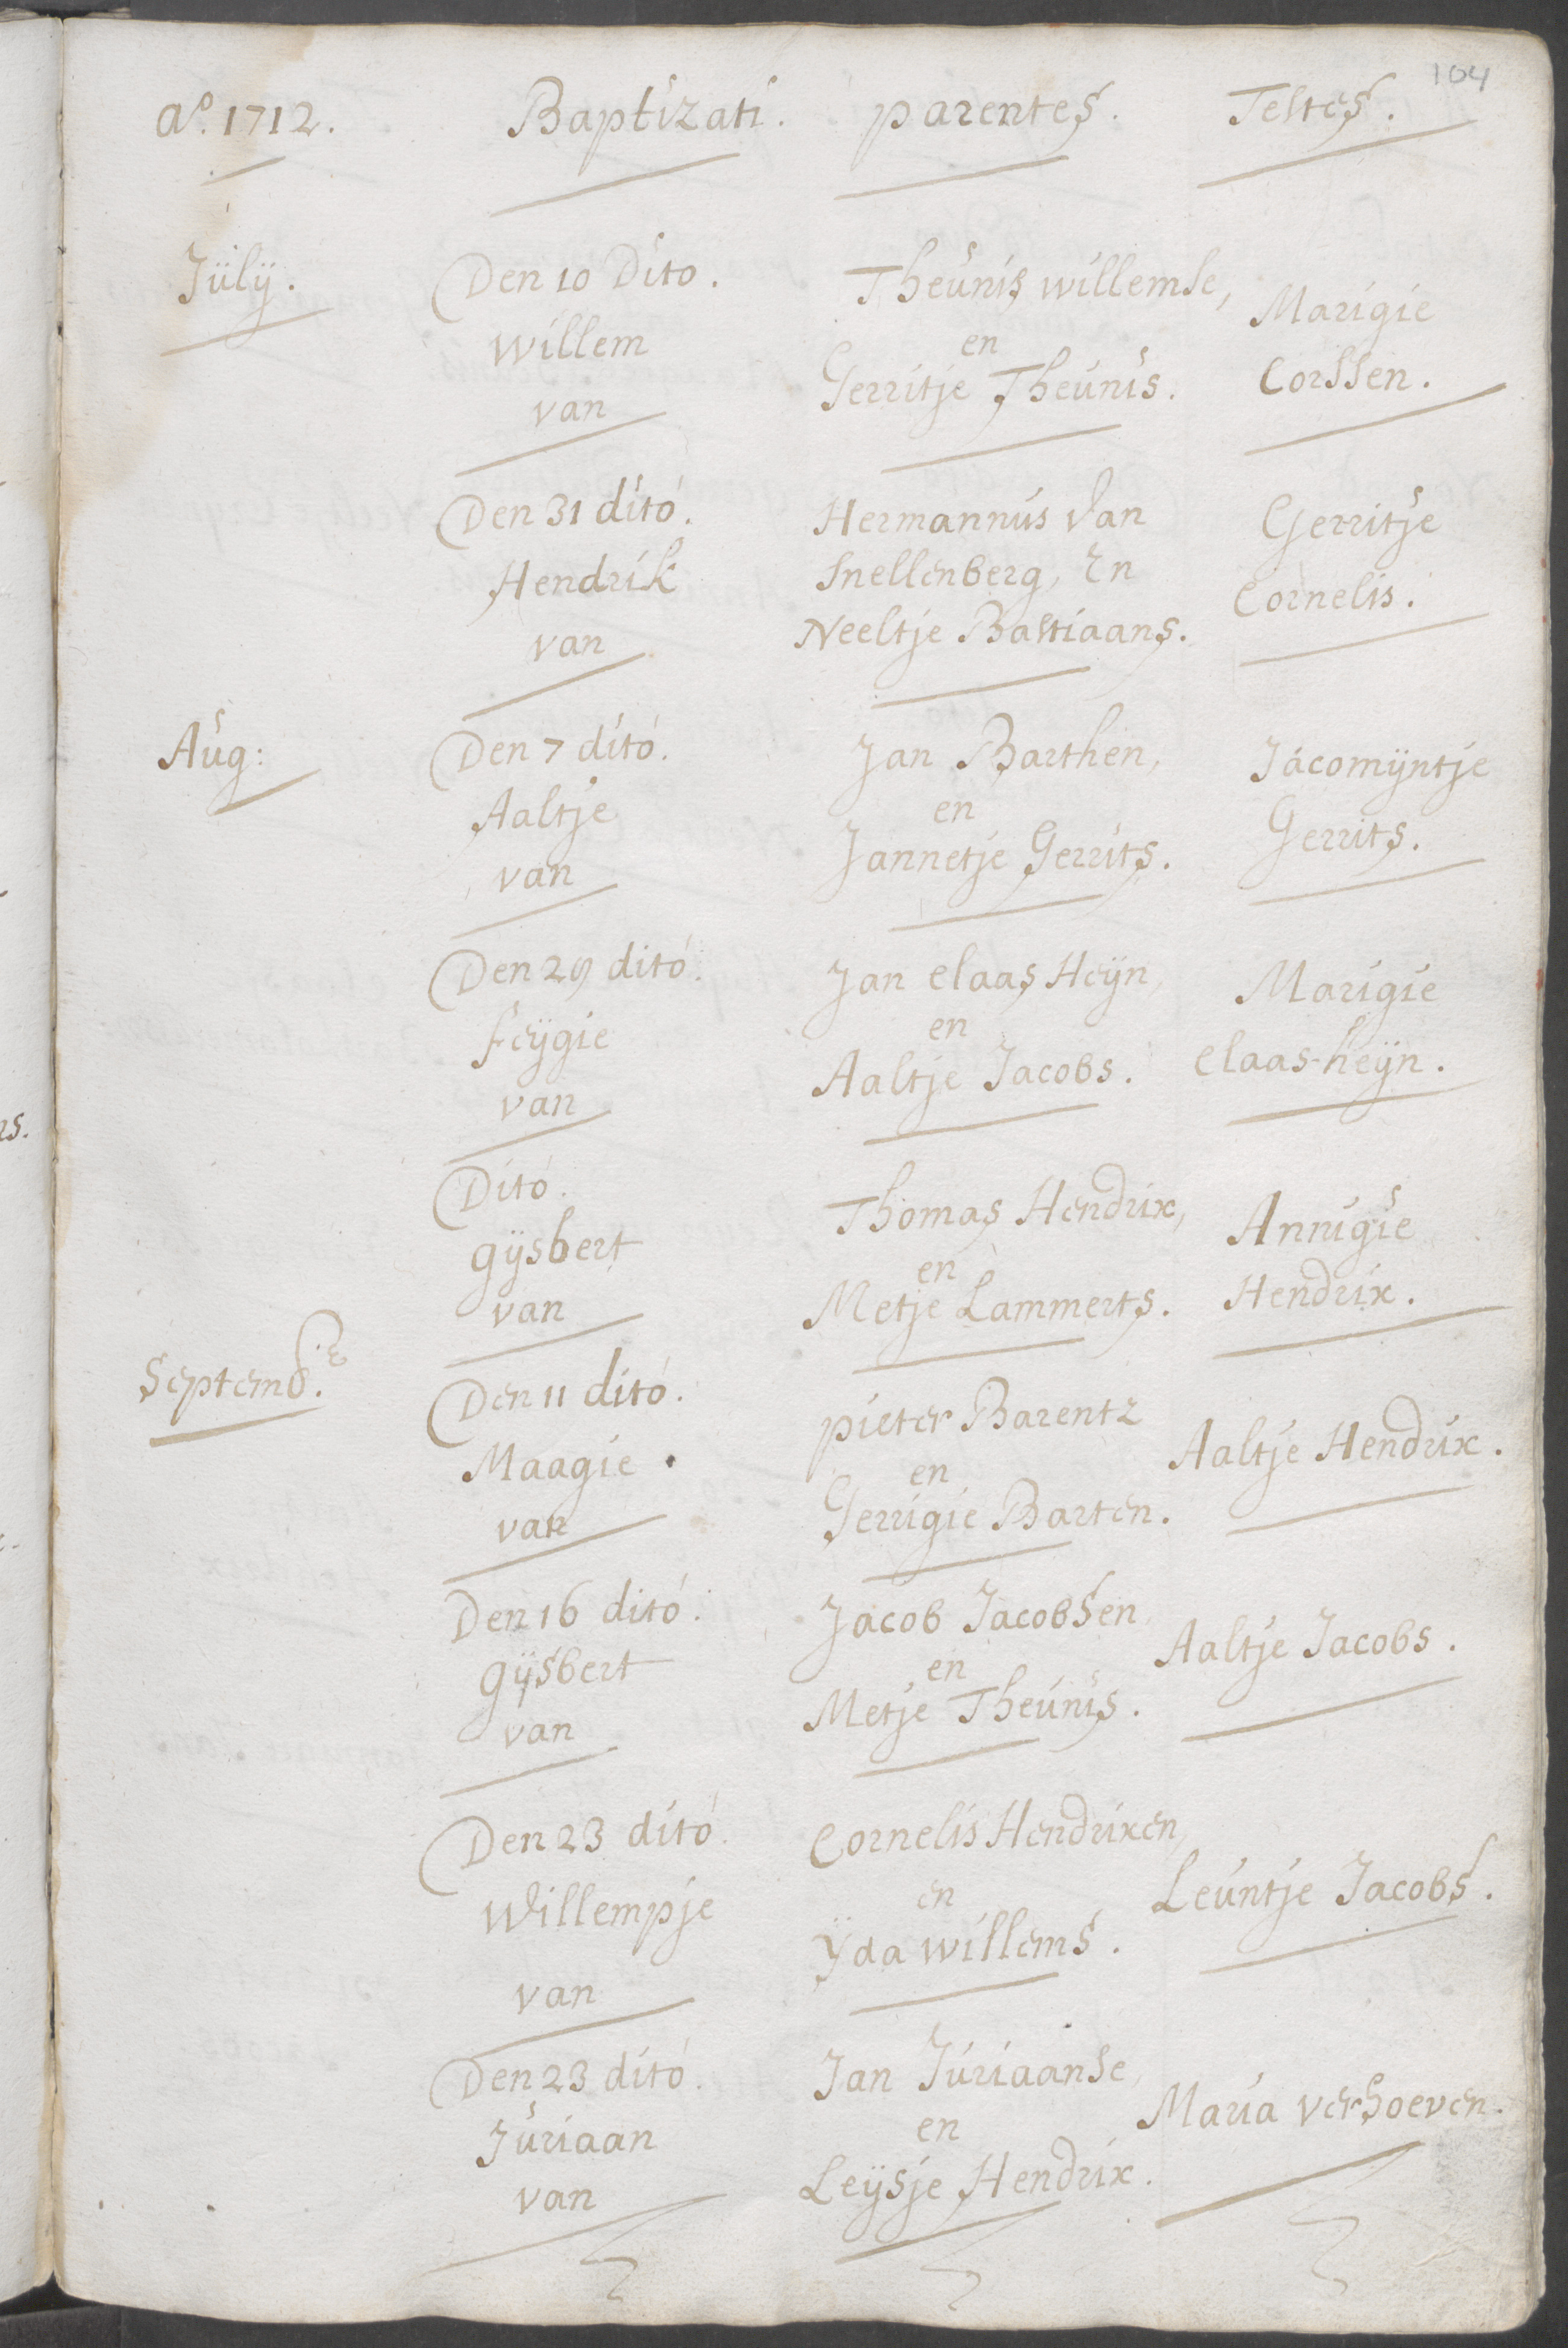 104
Ao. 1712. Baptizati. parentes. Testes.
Jülÿ.
Den 10 Dito.
willem
van
Theunis willemse,
en
Gerritje Theunis.
Marigie
Corssen.
Den 31 dito.
Hendrik
van
Hermannus van
Snellenberg, En
Neeltje Bastiaans.
Gerritje
Cornelis.
Aug:
Den 7 dito.
Aaltje
van
Jan Barthen,
en
Jannetje Gerrits.
Jacomÿntje
Gerrits.
Den 29 dito.
feÿgie
van
Jan Claas Heÿn,
en
Aaltje Jacobs.
Marigie
Claas-heÿn.
Dito.
gÿsbert
van
Thomas Hendrix,
en
Metje Lammerts.
Annigie
Hendrix.
Septemb.
Den 11 dito.
Maagie.
van
pieter Barentz
en
Gerrigie Barten.
Aaltje Hendrix.
Den 16 dito.
gÿsbert
van
Jacob Jacobsen
en
Metje Theunis.
Aaltje Jacobs.
Den 23 dito.
Willempje
van
Cornelis Hendrixen,
en
Ÿda willems.
Leuntje Jacobs.
Den 23 dito.
Juriaan
van
Jan Juriaanse,
en
Leÿsje Hendrix.
Maria verhoeven.